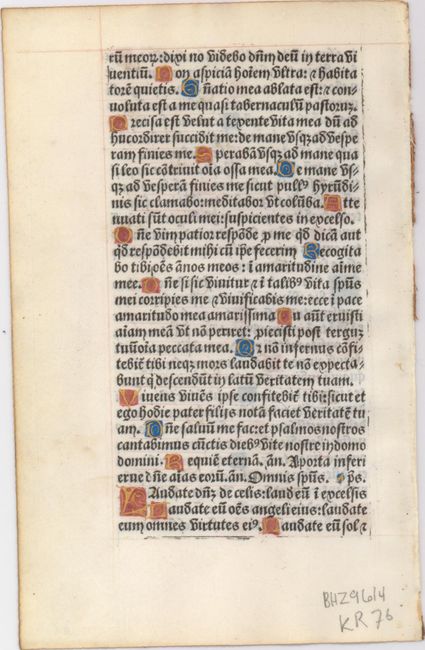 rũ meorũ: dixi nõ videbo dñm deũ in terra vi
uentiũ. Non aspiciã hoĩem vltra: ⁊ habita
torẽ quietis. Gñatio mea ablata est: ⁊ con-
uoluta est a me quasi tabernaculũ pastorũ.
Precisa est velut a texente vita mea dũ ad
huc ordirer succidit me: de mane vsqꝫ ad vespe
ram finies me. Sperabã vsqꝫ ad mane qua
si leo sic cõtriuit oĩa ossa mea. De mane vs-
qꝫ ad vesperã finies me sicut pullꝰ hyrũdi-
nis sic clamabo: meditabor vt colũba. Atte
nuati sũt oculi mei: suspicientes in excelso.
Dñe vim patior respõde ꝓ me qd dicã aut
qd respõdebit mihi cũ ip̃e fecerim Recogita
bo tibi oẽs ãnos meos: ĩ amaritudine aĩme
mee. Dñe si sic viuitur ⁊ ĩ talibꝰ vita spũs
mei corripies me ⁊ viuificabis me: ecce ĩ pace
amaritudo mea amarissima Tu aũt eruisti
aĩam meã vt nõ periret: ꝓiecisti post terguꝫ
tuũ oĩa peccata mea. Qr nõ infernus cõfi-
tebit̃ tibi neqꝫ mors laudabit te nõ expecta-
bunt q̃ descendũt in lacũ veritatem tuam.
Viuens viuẽs ipse confitebit̃ tibi: sicut et
ego hodie pater filijs notã faciet veritatẽ tu
am. Dñe saluũ me fac: et psalmos nostros
cantabimus cũctis diebꝰ vite nostre in domo
domini. Requiẽ eternã. añ. A porta inferi
erue dñe aĩas eorũ. añ. Omnis spũs. ps.
Laudate dñꝫ de celis: laud eũ ĩ excelsis
Laudate eũ oẽs angeli eius: laudate
eum omnes virtutes eiꝰ. Laudate eũ sol ⁊
BHZ9614
KR 76